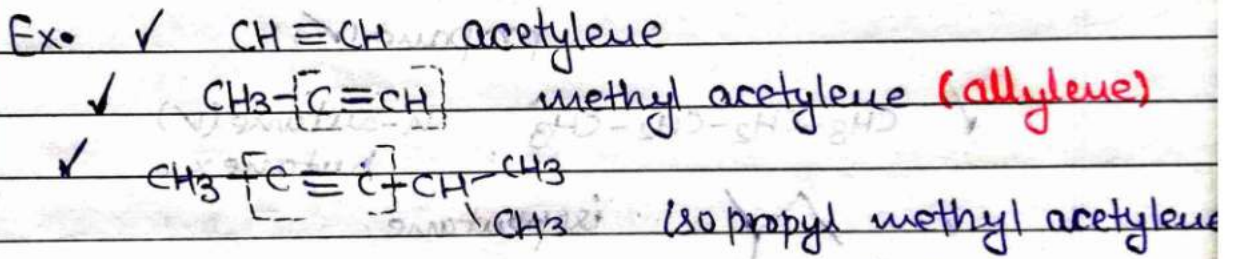 Ex. ✓ CH≡CH acetylene
✓ CH3-[C≡CH] methyl acetylene (allylene)
✓ CH3-[C≡C]-CH-CH3
CH3 Isopropyl methyl acetylene